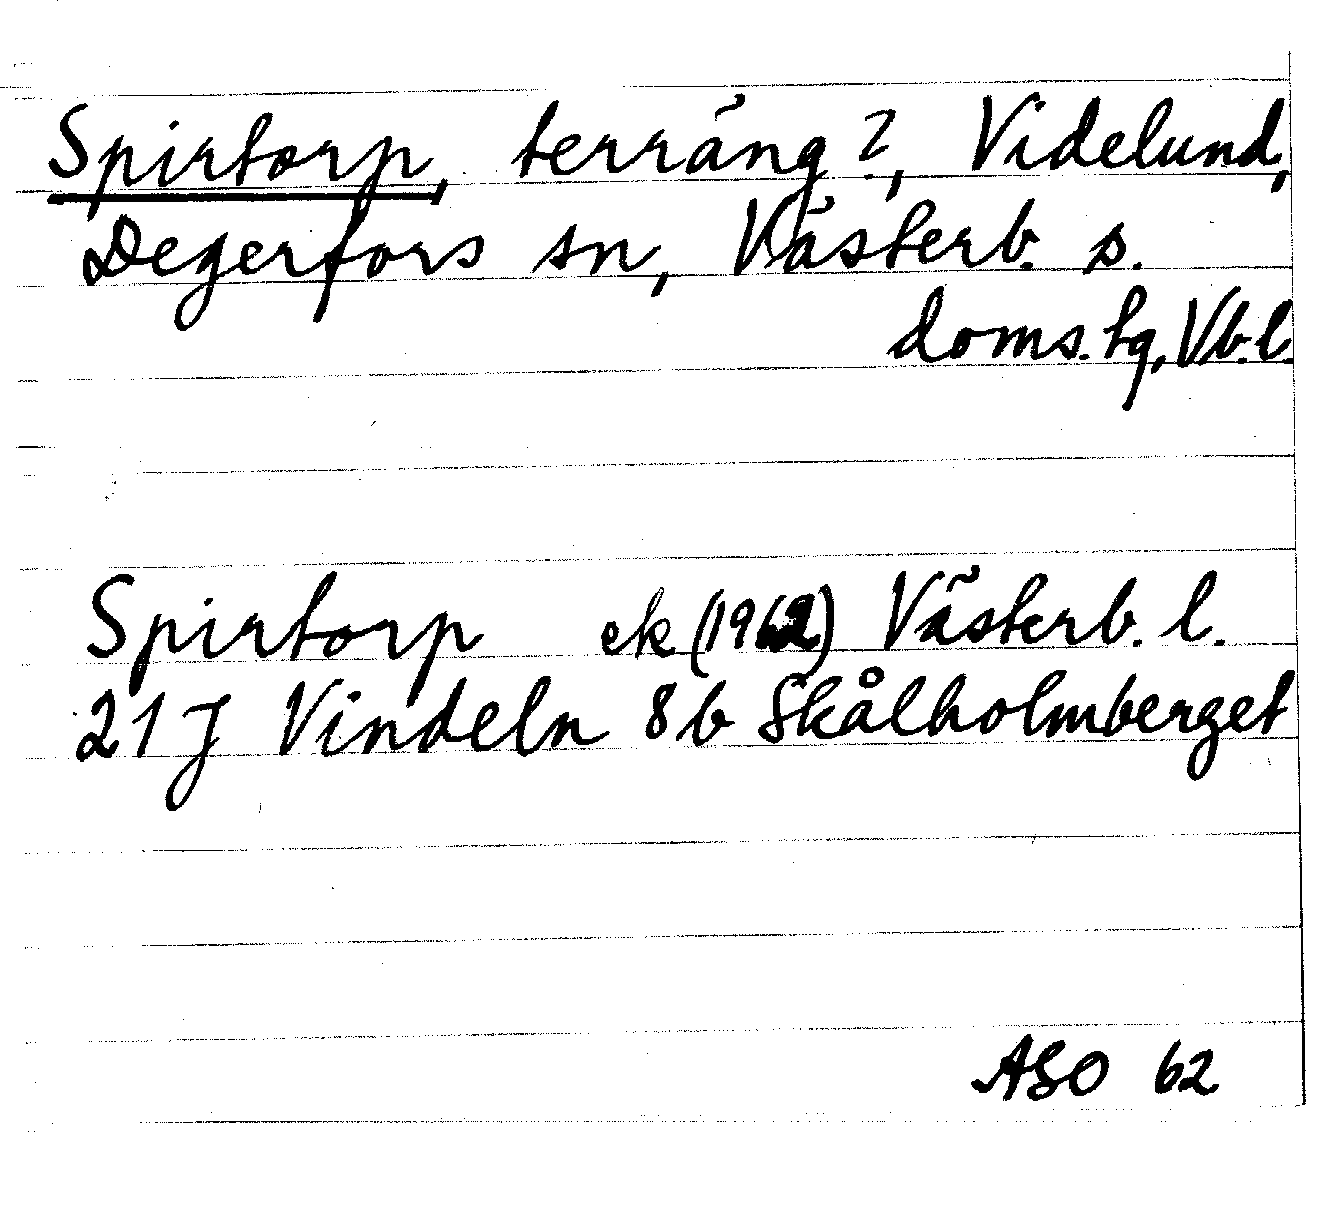 Spirtorp, terräng?, Videlund,
Degerfors sn, Västerb. s.
doms. tg, Vb. l.
Spirtorp ek (1962) Västerb. l.
21 J Vindeln 8 b Skålholmberget
ASO 62